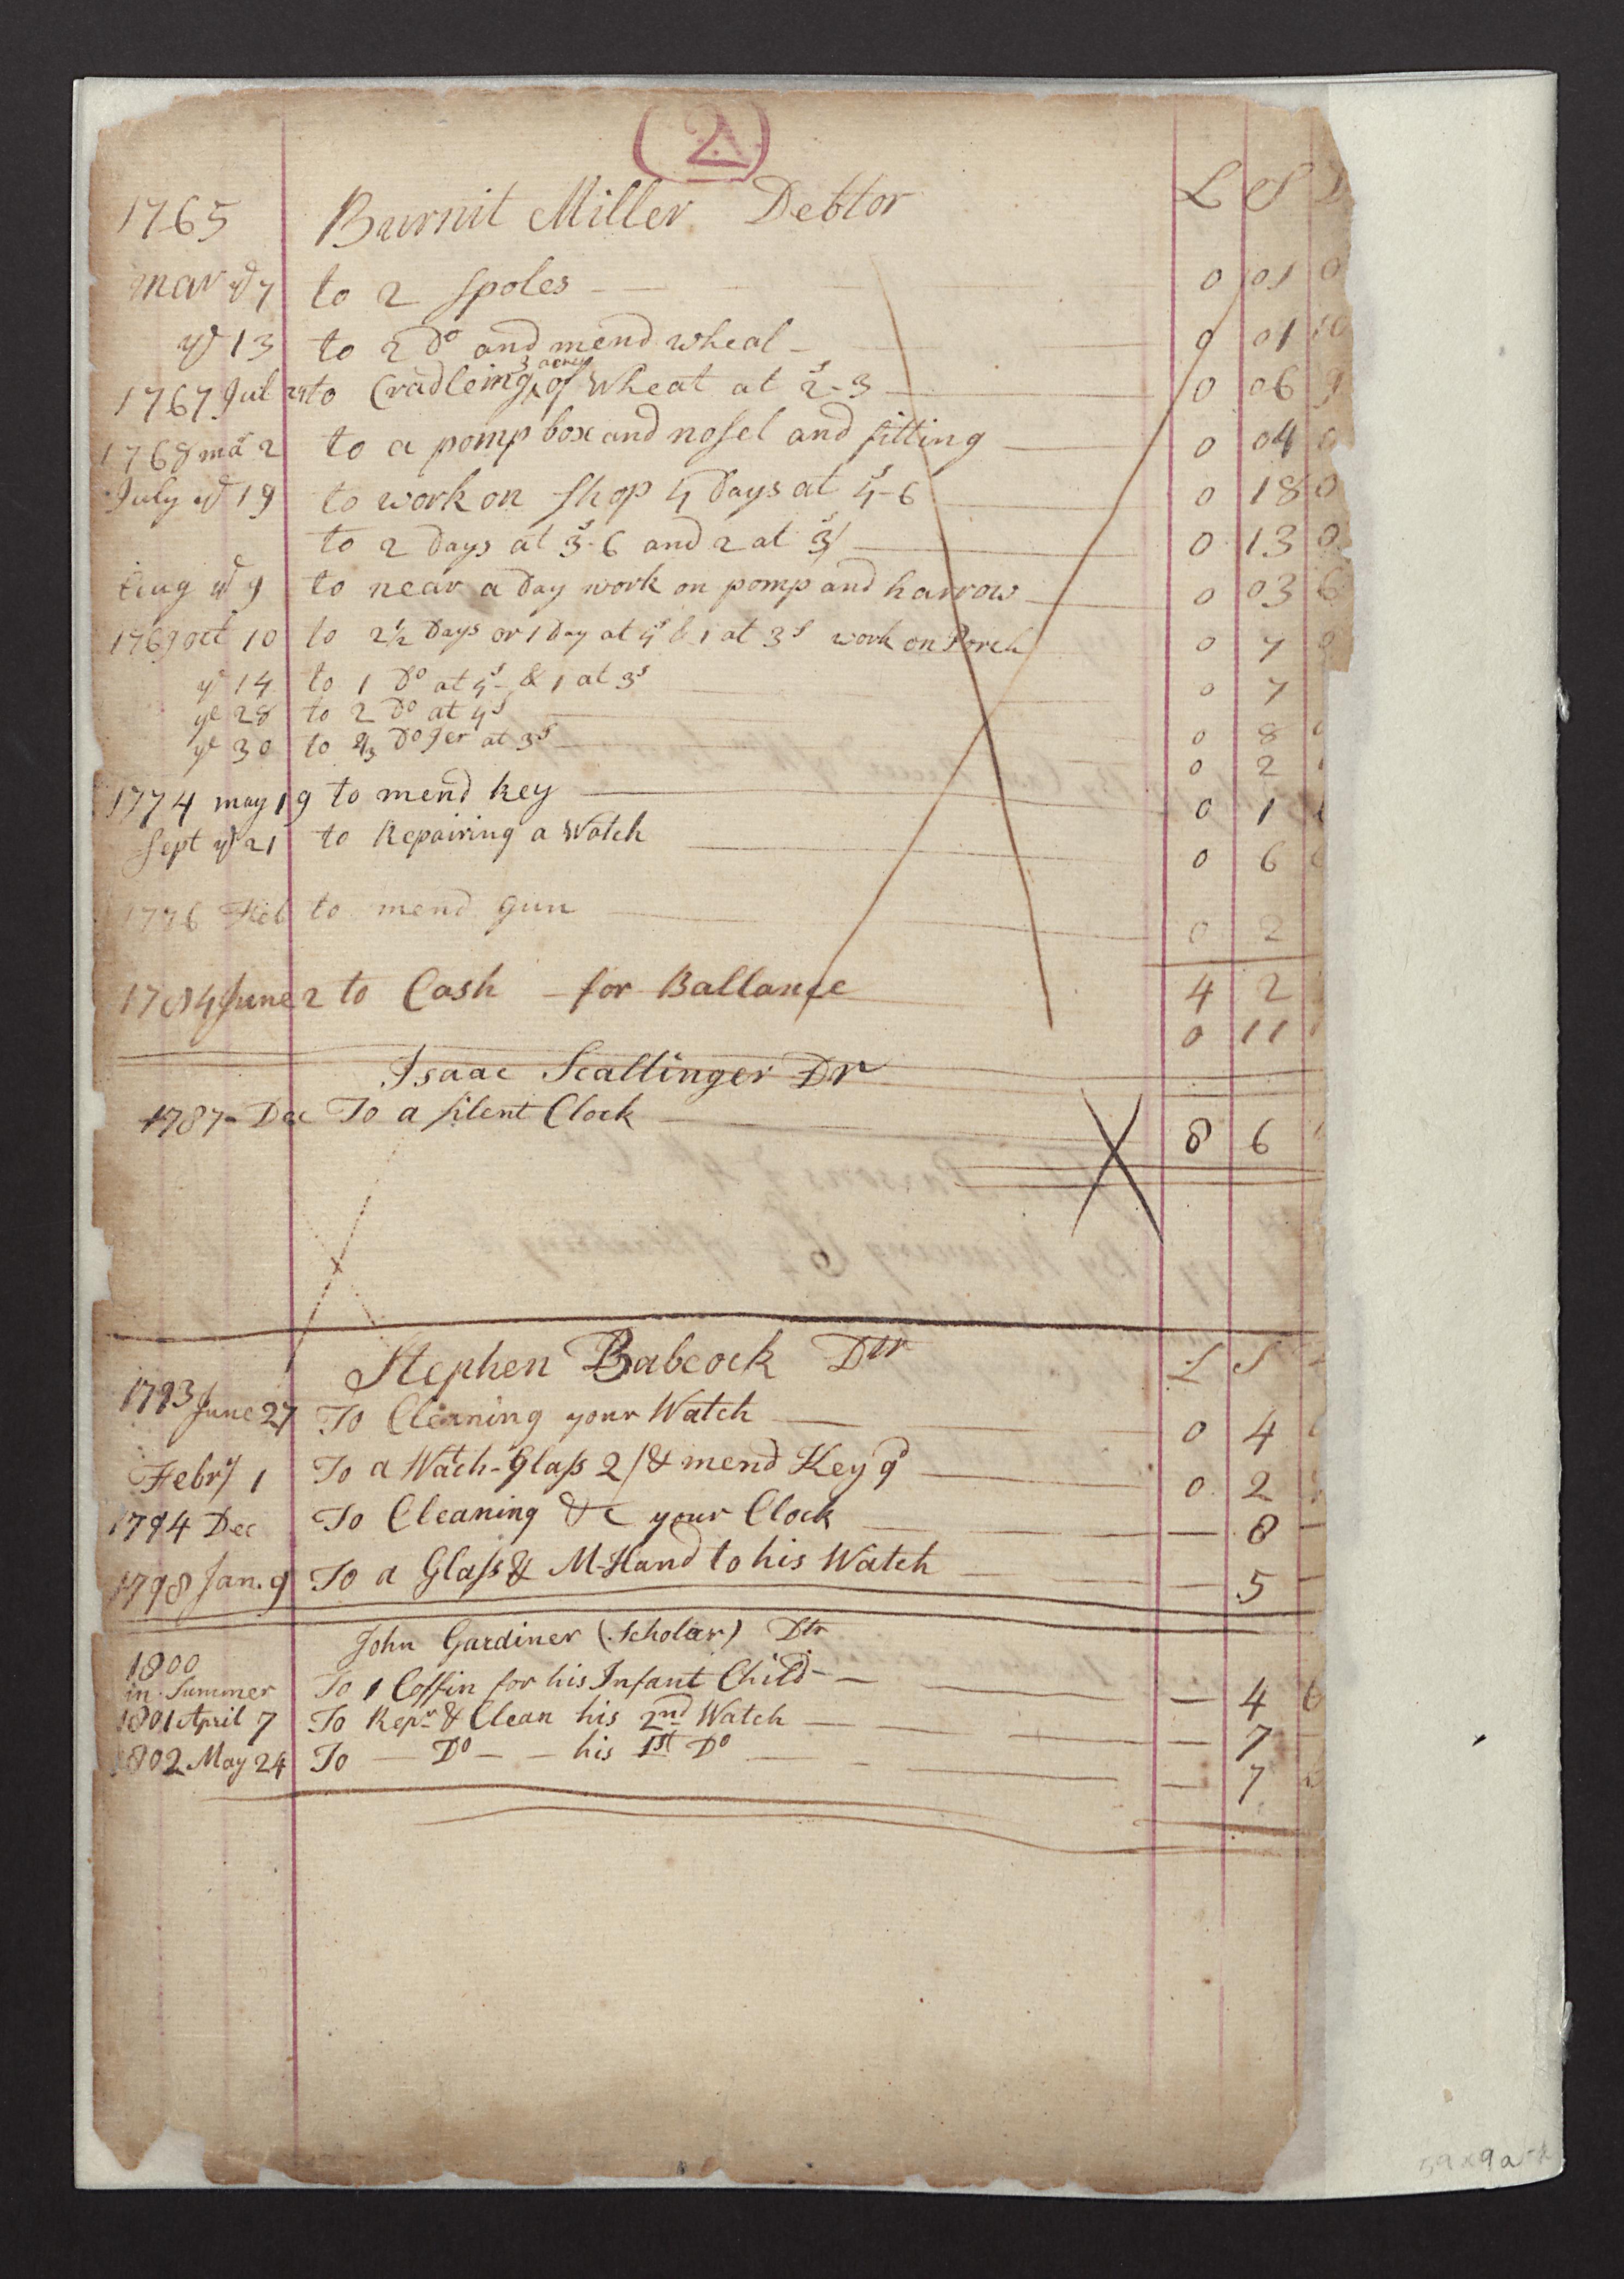 (2)
1765 Burnit Miller Debtor L S D
mar ye 7 to 2 spoles 0 01 0
ye 13 to 2 Do and mend wheal 0 01 10
1767 Jul 29 to Cradleing 3 acres of wheat at 2s-3 0 06 9
1768 mar 2 to a pomp box and nosel and fitting 0 04 0
July ye 19 to work on shop 4 Days at 4s-6 0 18 0
to 2 Days at 3s-6 and 2 at 3s/ 0 13 0
Aug ye 9 to near a Day work on pomp and harrow 0 03 6
1769 oct 10 to 2 1/2 Days or 1 Day at 4s & 1 at 3s work on Porch 0 7 0
ye 14 to 1 Do at 4s & 1 at 3s 0 7
ye 28 to 2 Do at 4s 0 8 0
ye 30 to 2/3 Do Jer at 3s 0 2
1774 may 19 to mend key 0 1
Sept ye 21 to Repairing a Watch 0 6
1776 Feb to mend Gun 0 2
4 2
1784 June 2 to Cash for Ballance 0 11
Isaac Scallinger Dr
1787 - Dec To a silent Clock 8 6
Stephen Babcock Dtr L S
1793 June 27 To Cleaning your Watch 0 4
Febry 1 To a Watch-Glass 2/ & mend Key 9d 0 2
1794 Dec To Cleaning &c your Clock — 8 —
1798 Jan. 9 To a Glass & M-Hand to his Watch — 5 —
John Gardiner (Scholar) Dtr
1800
in Summer To 1 Coffin for his Infant Child — 4 6
1801 April 7 To Repr & Clean his 2nd Watch — 7 —
1802 May 24 To — Do — his 1st Do — 7
59x9a